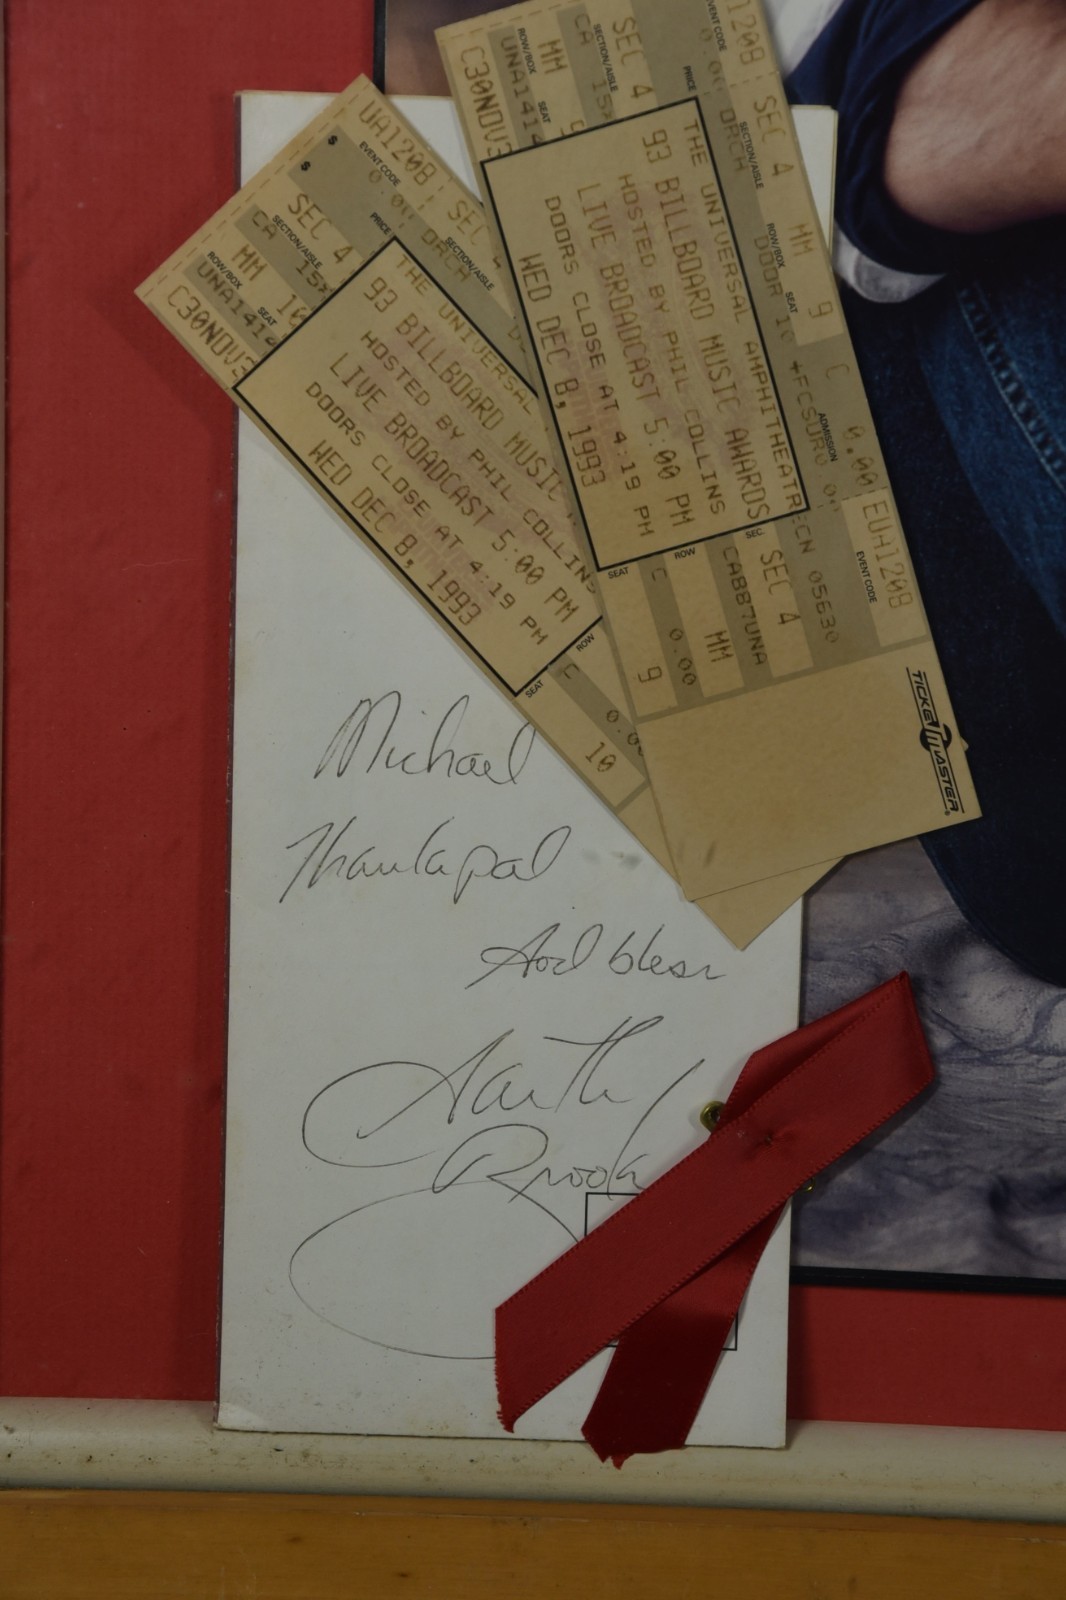 UA1208 SEC
EVENT CODE
$ 0.00 ORCA
SECTION/AISLE
PRICE
SEC 4
CA 15x
SECTION/AISLE
MM 10
ROW/BOX SEAT
UNA1414
C30NOV3
THE UNIVERSAL
93 BILLBOARD MUSIC
HOSTED BY PHIL COLLINS
LIVE BROADCAST 5:00 PM
DOORS CLOSE AT 4:19 PM
WED DEC 8, 1993
ROW
SEAT
C 0.00
10
1208 SEC 4 MM 9
EVENT CODE SECTION/AISLE ROW/BOX SEAT
ORCA DOOR 10
PRICE
SEC 4
CA 15x
SECTION/AISLE
MM
ROW/BOX SEAT
UNA1414
C30NOV3
THE UNIVERSAL AMPHITHEATRE
93 BILLBOARD MUSIC AWARDS
HOSTED BY PHIL COLLINS
LIVE BROADCAST 5:00 PM
DOORS CLOSE AT 4:19 PM
WED DEC 8, 1993
C 0.00 EUA1208
ADMISSION EVENT CODE
CN 05630
SEC. SEC 4
CA887UNA
ROW MM
C 0.00
SEAT 9
TICKETMASTER®
Michael
Thanks pal
God bless
Garth
Brooks